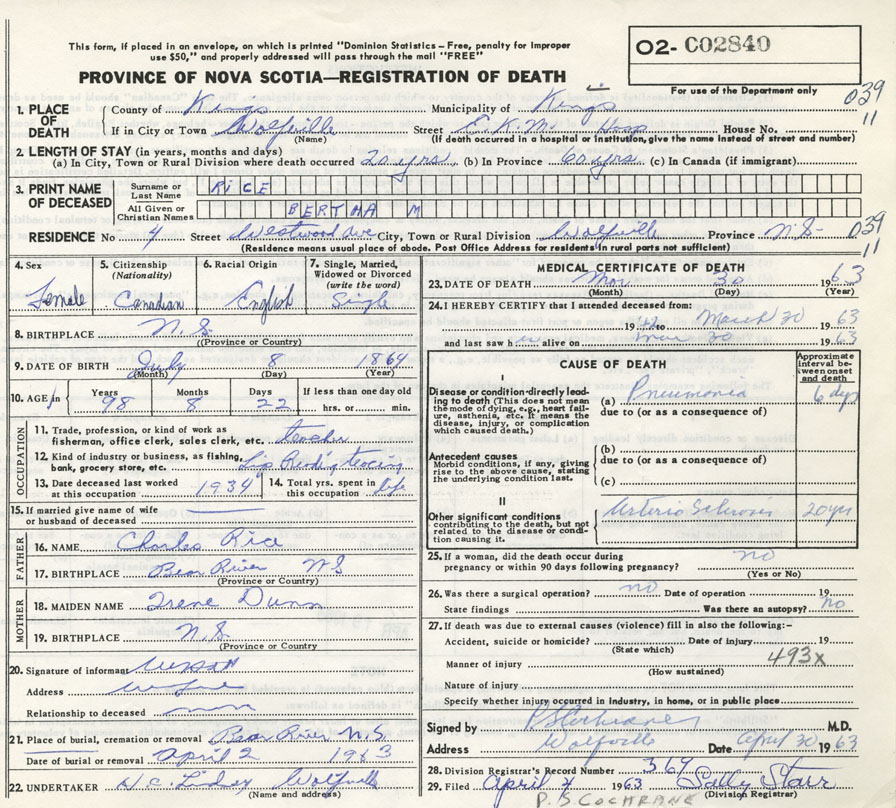 This form, if placed in an envelope, on which is printed "Dominion Statistics - Free, penalty for improper
use $50," and properly addressed will pass through the mail "FREE"
O2- C02840
PROVINCE OF NOVA SCOTIA—REGISTRATION OF DEATH
For use of the Department only
039
11
1. PLACE OF DEATH
County of Kings Municipality of Kings
If in City or Town Wolfville Street E.K.M. Hosp House No.
(Name) (If death occurred in a hospital or institution, give the name instead of street and number)
2. LENGTH OF STAY (in years, months and days)
(a) In City, Town or Rural Division where death occurred 20 yrs (b) In Province 60 yrs (c) In Canada (if immigrant)
3. PRINT NAME OF DECEASED
Surname or Last Name RICE
All Given or Christian Names BERTHA M
RESIDENCE No 4 Street Westwood Ave City, Town or Rural Division Wolfville Province N.S- 039
11
(Residence means usual place of abode. Post Office Address for residents in rural parts not sufficient)
4. Sex Female
5. Citizenship (Nationality) Canadian
6. Racial Origin English
7. Single, Married, Widowed or Divorced (write the word) Single
8. BIRTHPLACE N.S.
(Province or County)
9. DATE OF BIRTH July 8 1864
(Month) (Day) (Year)
10. AGE in Years 98 Months 8 Days 22 If less than one day old hrs. or min.
OCCUPATION
11. Trade, profession, or kind of work as fisherman, office clerk, sales clerk, etc. teacher
12. Kind of industry or business, as fishing, bank, grocery store, etc. Lip Reding
13. Date deceased last worked at this occupation 1934
14. Total yrs. spent in this occupation life
15. If married give name of wife or husband of deceased
FATHER
16. NAME Charles Rice
17. BIRTHPLACE Bear River NS
(Province or Country)
MOTHER
18. MAIDEN NAME Irene Dunn
19. BIRTHPLACE N.S.
(Province or Country
20. Signature of informant
Address
Relationship to deceased
21. Place of burial, cremation or removal Bear River N.S.
Date of burial or removal April 2 1963
22. UNDERTAKER Wolfville
(Name and address)
MEDICAL CERTIFICATE OF DEATH
23. DATE OF DEATH Mar 30 1963
(Month) (Day) (Year)
24. I HEREBY CERTIFY that I attended deceased from:
19 to March 30 1963
and last saw h alive on Mar 30 1963
CAUSE OF DEATH
Approximate interval between onset and death
I
Disease or condition-directly leading to death (This does not mean the mode of dying, e.g., heart failure, asthenia, etc. It means the disease, injury, or complication which caused death.)
(a) Pneumonia 6 days
due to (or as a consequence of)
Antecedent causes
Morbid conditions, if any, giving rise to the above cause, stating the underlying condition last.
(b)
due to (or as a consequence of)
(c)
II
Other significant conditions contributing to the death, but not related to the disease or condition causing it.
Arterio Sclerosis 20 yrs
25. If a woman, did the death occur during pregnancy or within 90 days following pregnancy? no
(Yes or No)
26. Was there a surgical operation? no Date of operation 19
State findings Was there an autopsy? No
27. If death was due to external causes (violence) fill in also the following:-
Accident, suicide or homicide? Date of injury 19
(State which)
Manner of injury 493x
(How sustained)
Nature of injury
Specify whether injury occurred in industry, in home, or in public place
Signed by P S Cochrane M.D.
Address Wolfville Date April 30 1963
28. Division Registrar's Record Number 364
29. Filed April 4 1963 Starr
(Division Registrar)
P. S. COCHRANE